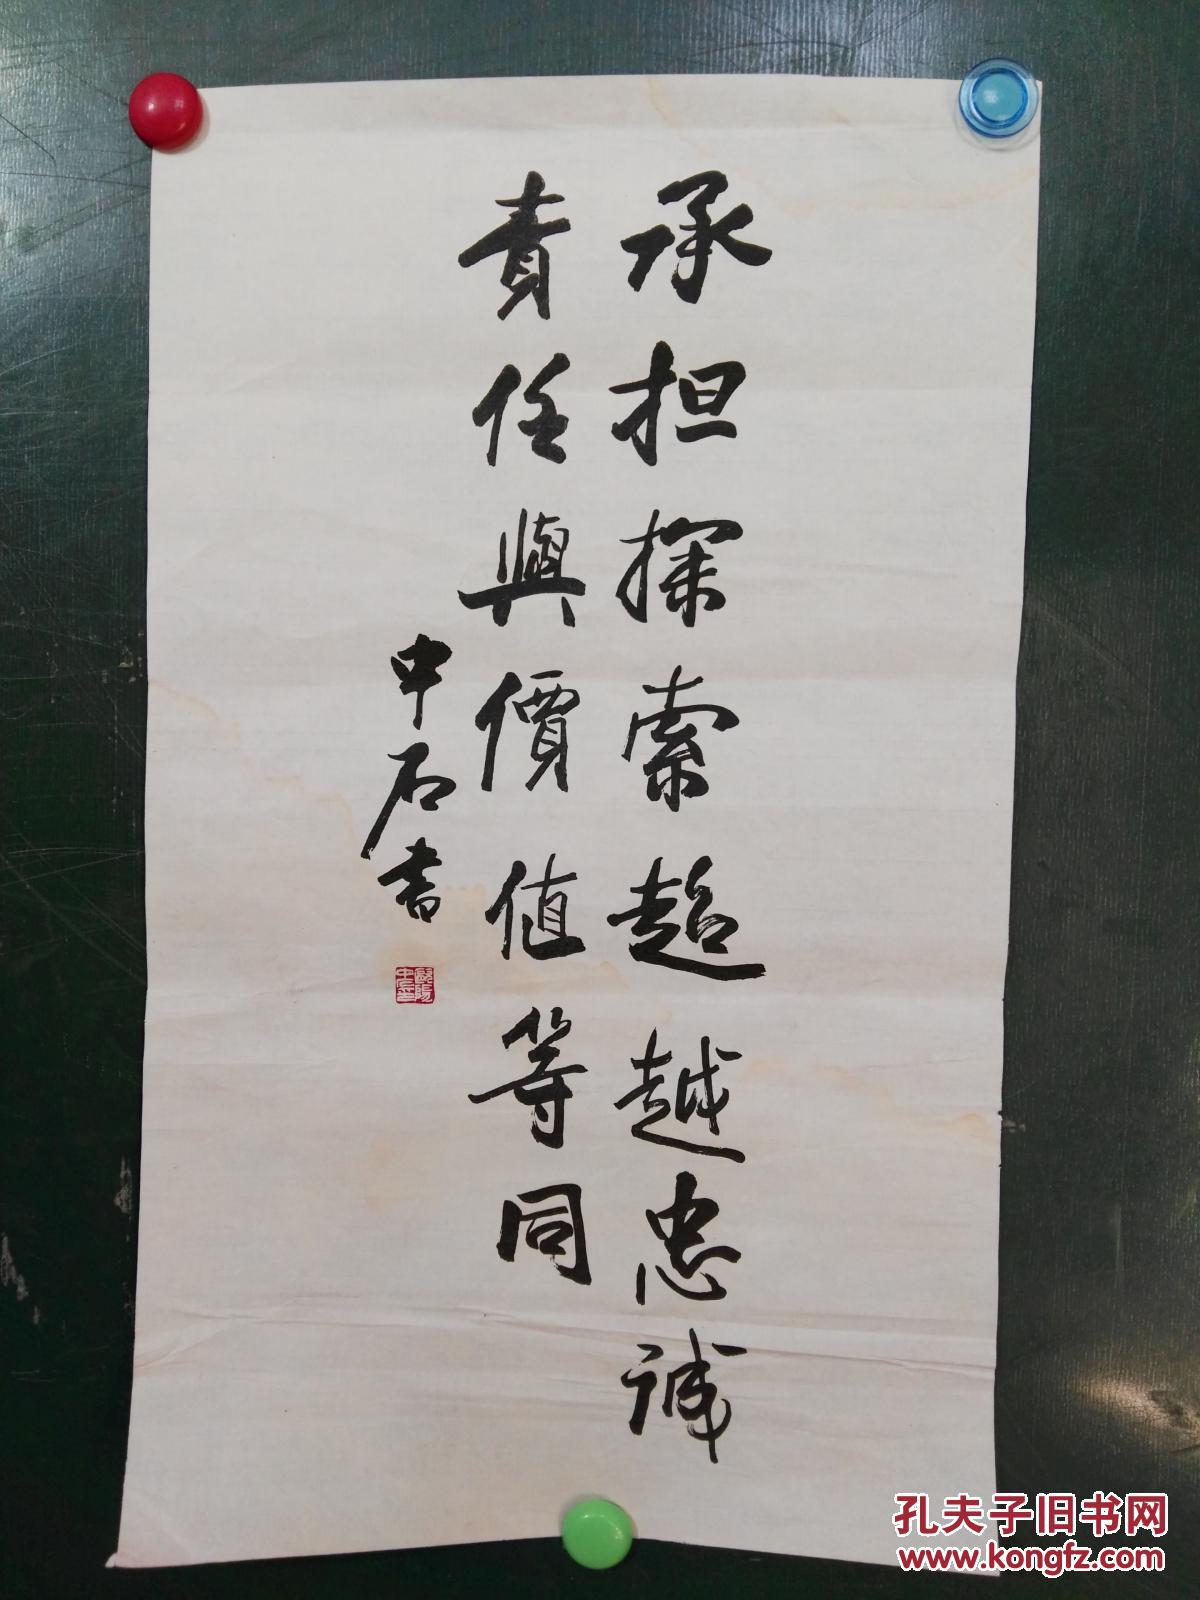 承担探索超越忠诚
责任與價值等同
中石书
歐陽中石
孔夫子旧书网
www.kongfz.com